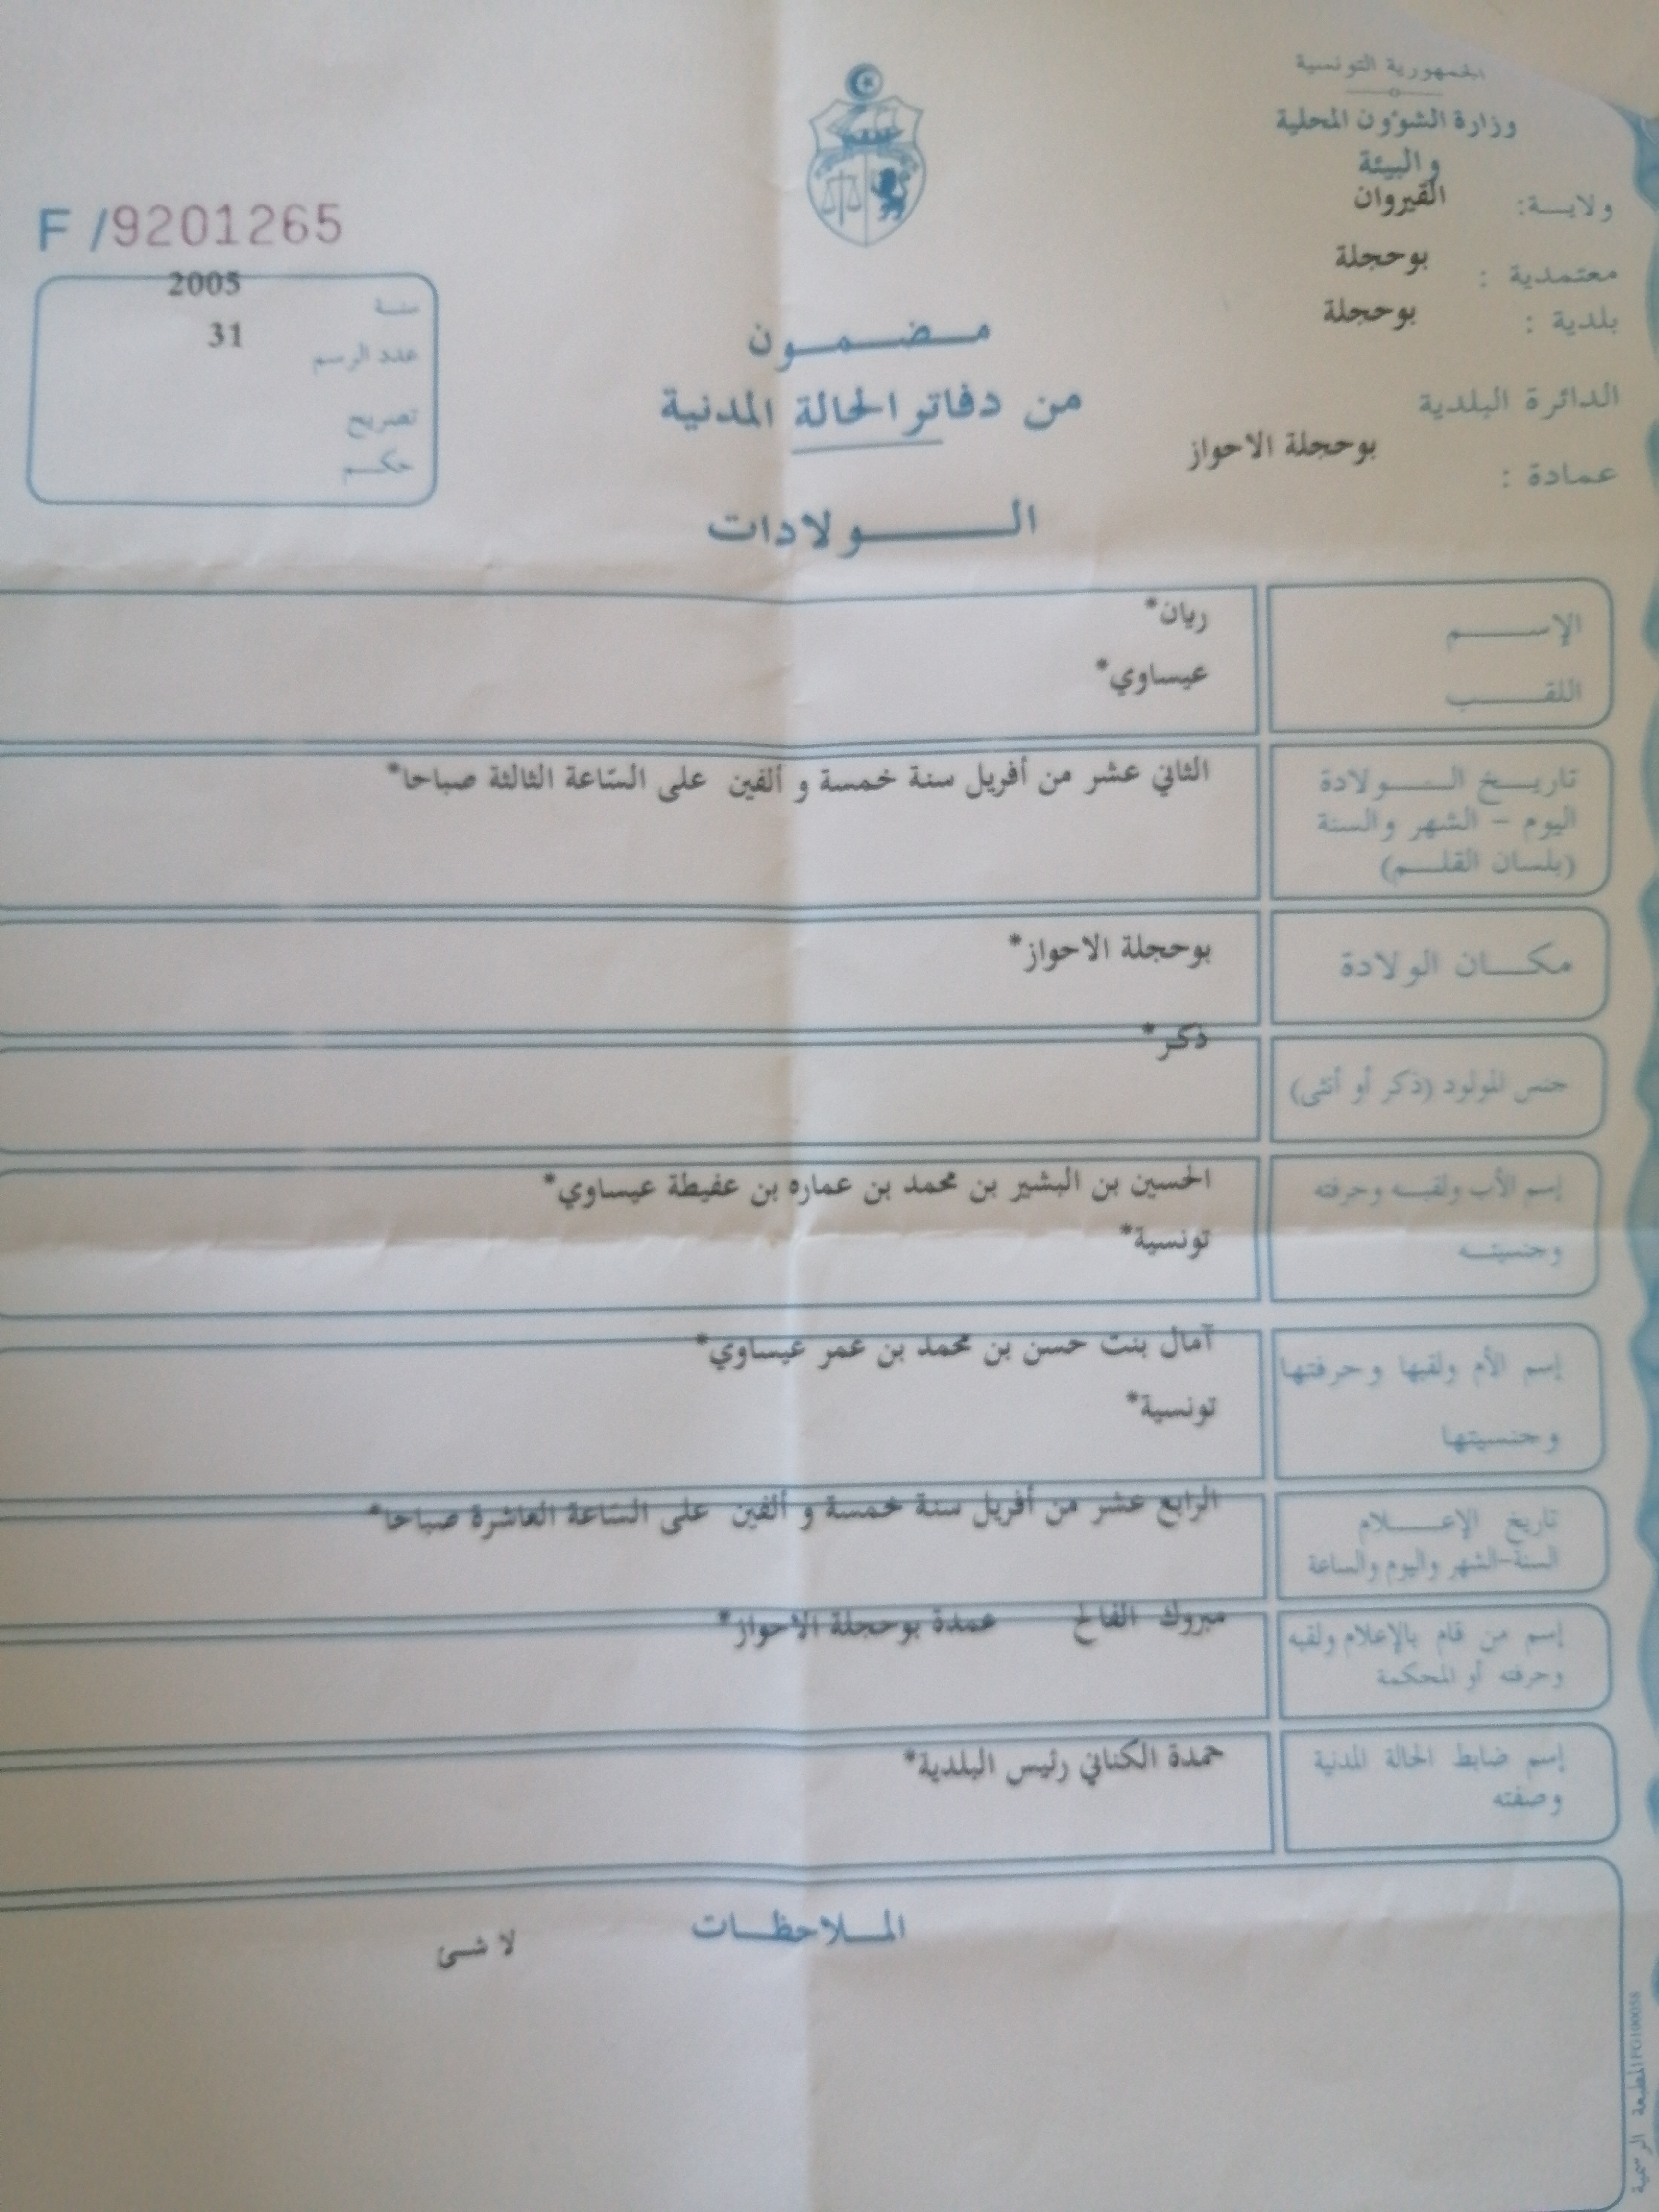 الجمهورية التونسية
وزارة الشؤون المحلية
والبيئة
ولايــة: القيروان
معتمدية : بوحجلة
بلدية : بوحجلة
الدائرة البلدية
عمادة : بوحجلة الاحواز
F /9201265
سنة 2005
عدد الرسم 31
تصريح
حكم
مضمون
من دفاتر الحالة المدنية
الولادات
الإسم ريان*
اللقب عيساوي*
تاريخ الولادة الثاني عشر من أفريل سنة خمسة و ألفين على السّاعة الثالثة صباحا*
اليوم - الشهر والسنة
(بلسان القلم)
مكان الولادة بوحجلة الاحواز*
جنس المولود (ذكر أو أنثى) ذكر*
إسم الأب ولقبه وحرفته الحسين بن البشير بن محمد بن عماره بن عفيطة عيساوي*
وجنسيته تونسية*
إسم الأم ولقبها وحرفتها آمال بنت حسن بن محمد بن عمر عيساوي*
وجنسيتها تونسية*
تاريخ الإعلام الرابع عشر من أفريل سنة خمسة و ألفين على السّاعة العاشرة صباحا*
السنة-الشهر واليوم والساعة
إسم من قام بالإعلام ولقبه مبروك الفالح عمدة بوحجلة الاحواز*
وحرفته أو المحكمة
إسم ضابط الحالة المدنية حمدة الكناني رئيس البلدية*
وصفته
الملاحظات
لا شئ
المطبعة الرسمية